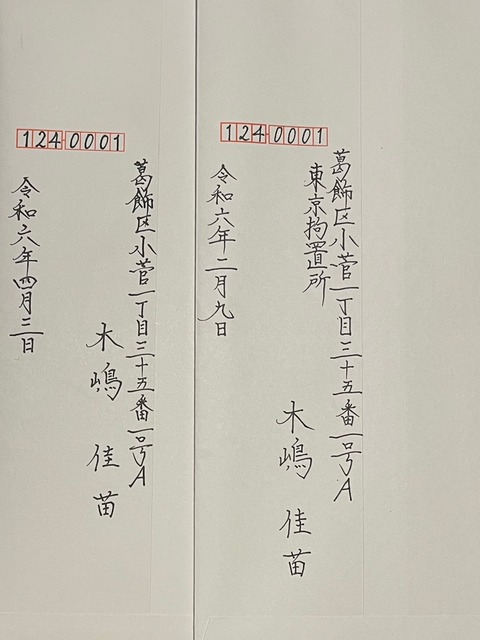 124-0001
葛飾区小菅一丁目三十五番一号A
東京拘置所
木嶋 佳苗
令和六年二月九日
124-0001
葛飾区小菅一丁目三十五番一号A
木嶋 佳苗
令和六年四月三日